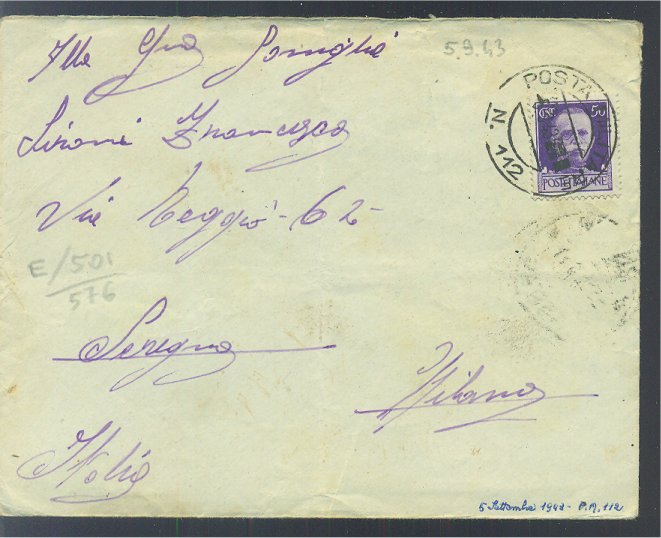 Alla Gra Famiglia
5.9.43
Sironi Francesco
Via Reggio - 62 -
E/501
576
Seregno
Milano
Italia
POSTA MILITARE
N. 112
CENT. 50
POSTE ITALIANE
5 Settembre 1943 - P.M. 112